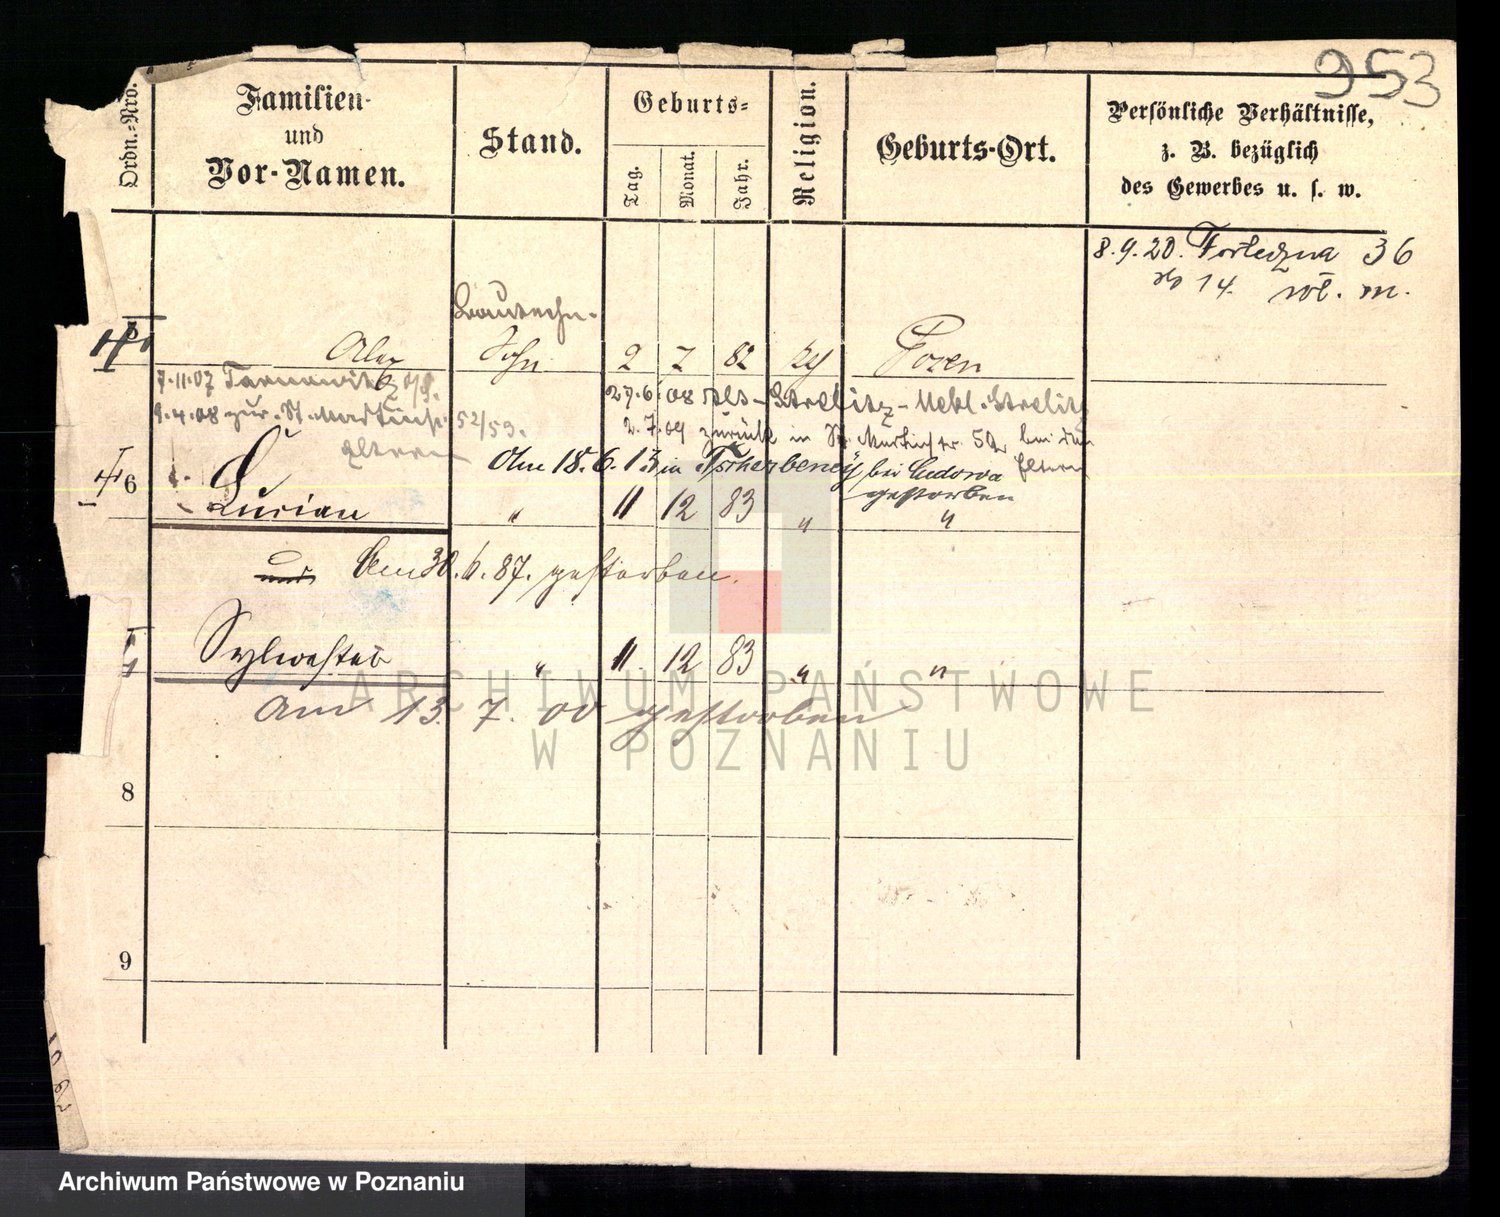 953
Ordn.-Nro.
Familien-
und
Vor-Namen.
Stand.
Geburts-
Tag.
Monat.
Jahr.
Religion.
Geburts-Ort.
Persönliche Verhältnisse,
z. B. bezüglich
des Gewerbes u. s. w.
8.9.20. Forteczna 36
14. wł. m.
Bautechn.
Alex Sohn 2 7 82 Posen
7.11.07 Tarnowitz
9.4.08 zur. St. Martinstr. 52/53.
Eltern
27.6.08 Alt-Strelitz-Mekl. Strelitz
2.7.09 zurück in St. Martinstr. 52 bei den
Eltern
Am 18.6.13 in Tscherbeney bei Cudowa
gestorben
6 Lucian " 11 12 83 " "
und Am 30.6.87. gestorben.
Sylvester " 11 12 83 " "
am 13. 7. 00 gestorben
8
9
ARCHIWUM PAŃSTWOWE
W POZNANIU
Archiwum Państwowe w Poznaniu